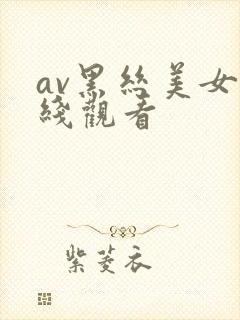 av黑丝美女
綫觀看
紫菱衣